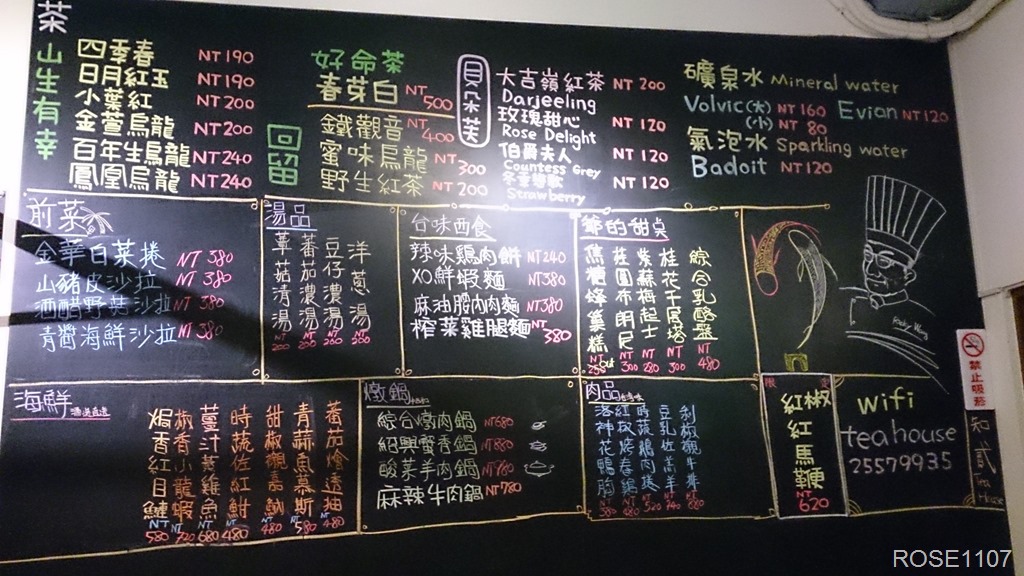 茶
山生有幸
四季春 NT190
日月紅玉 NT190
小葉紅 NT200
金萱烏龍 NT200
百年生烏龍 NT240
鳳凰烏龍 NT240
回留
好命茶
春芽白 NT500
鐵觀音 NT400
蜜味烏龍 NT300
野生紅茶 NT200
大吉嶺紅茶 NT 200
Darjeeling
玫瑰甜心 NT 120
Rose Delight
伯爵夫人 NT 120
Countess Grey
NT120
Strawberry
礦泉水 Mineral water
Volvic(大) NT 160 Evian NT120
(小) NT 80
氣泡水 Sparkling water
Badoit NT120
前菜
金華白菜捲 NT 380
山豬皮沙拉 NT 380
酒醋野菇沙拉 NT 380
青醬海鮮沙拉 NT 380
湯品
蕈菇清湯 NT 200
蕃茄濃湯
豆仔濃湯 NT 260
洋蔥湯 NT 260
台味西食
辣味鷄肉餅 NT240
XO鮮蝦麵 NT380
麻油腰內肉麵 NT380
榨菜雞腿麵 NT380
爺的甜桌
焦糖蜂巢糕 NT 250
桂圓布朗尼 NT 300
紫蘇梅起士 NT 280
桂花千層塔 NT 300
綜合乳酪盤 NT 480
海鮮
焗香紅目鰱 NT 580
椒香小龍蝦 NT 720
薑汁黃雞魚 NT 680
時蔬佐紅魽 NT 480
青蒜魚慕斯 NT 580
蕃茄燴透抽 NT 480
燉鍋
綜合燉肉鍋 NT680
紹興蟹香鍋 NT880
酸菜羊肉鍋 NT780
麻辣牛肉鍋 NT780
肉品
洛神花鴨胸 NT 380
紅椒烤春鷄 NT 480
時蔬鷄肉煲 NT 520
豆乳佐羔羊 NT 740
剝椒襯牛 NT 680
限定
紅椒紅馬鞭 NT 620
wifi
teahouse
25579935
知貳
Tea House
禁止吸菸
ROSE1107